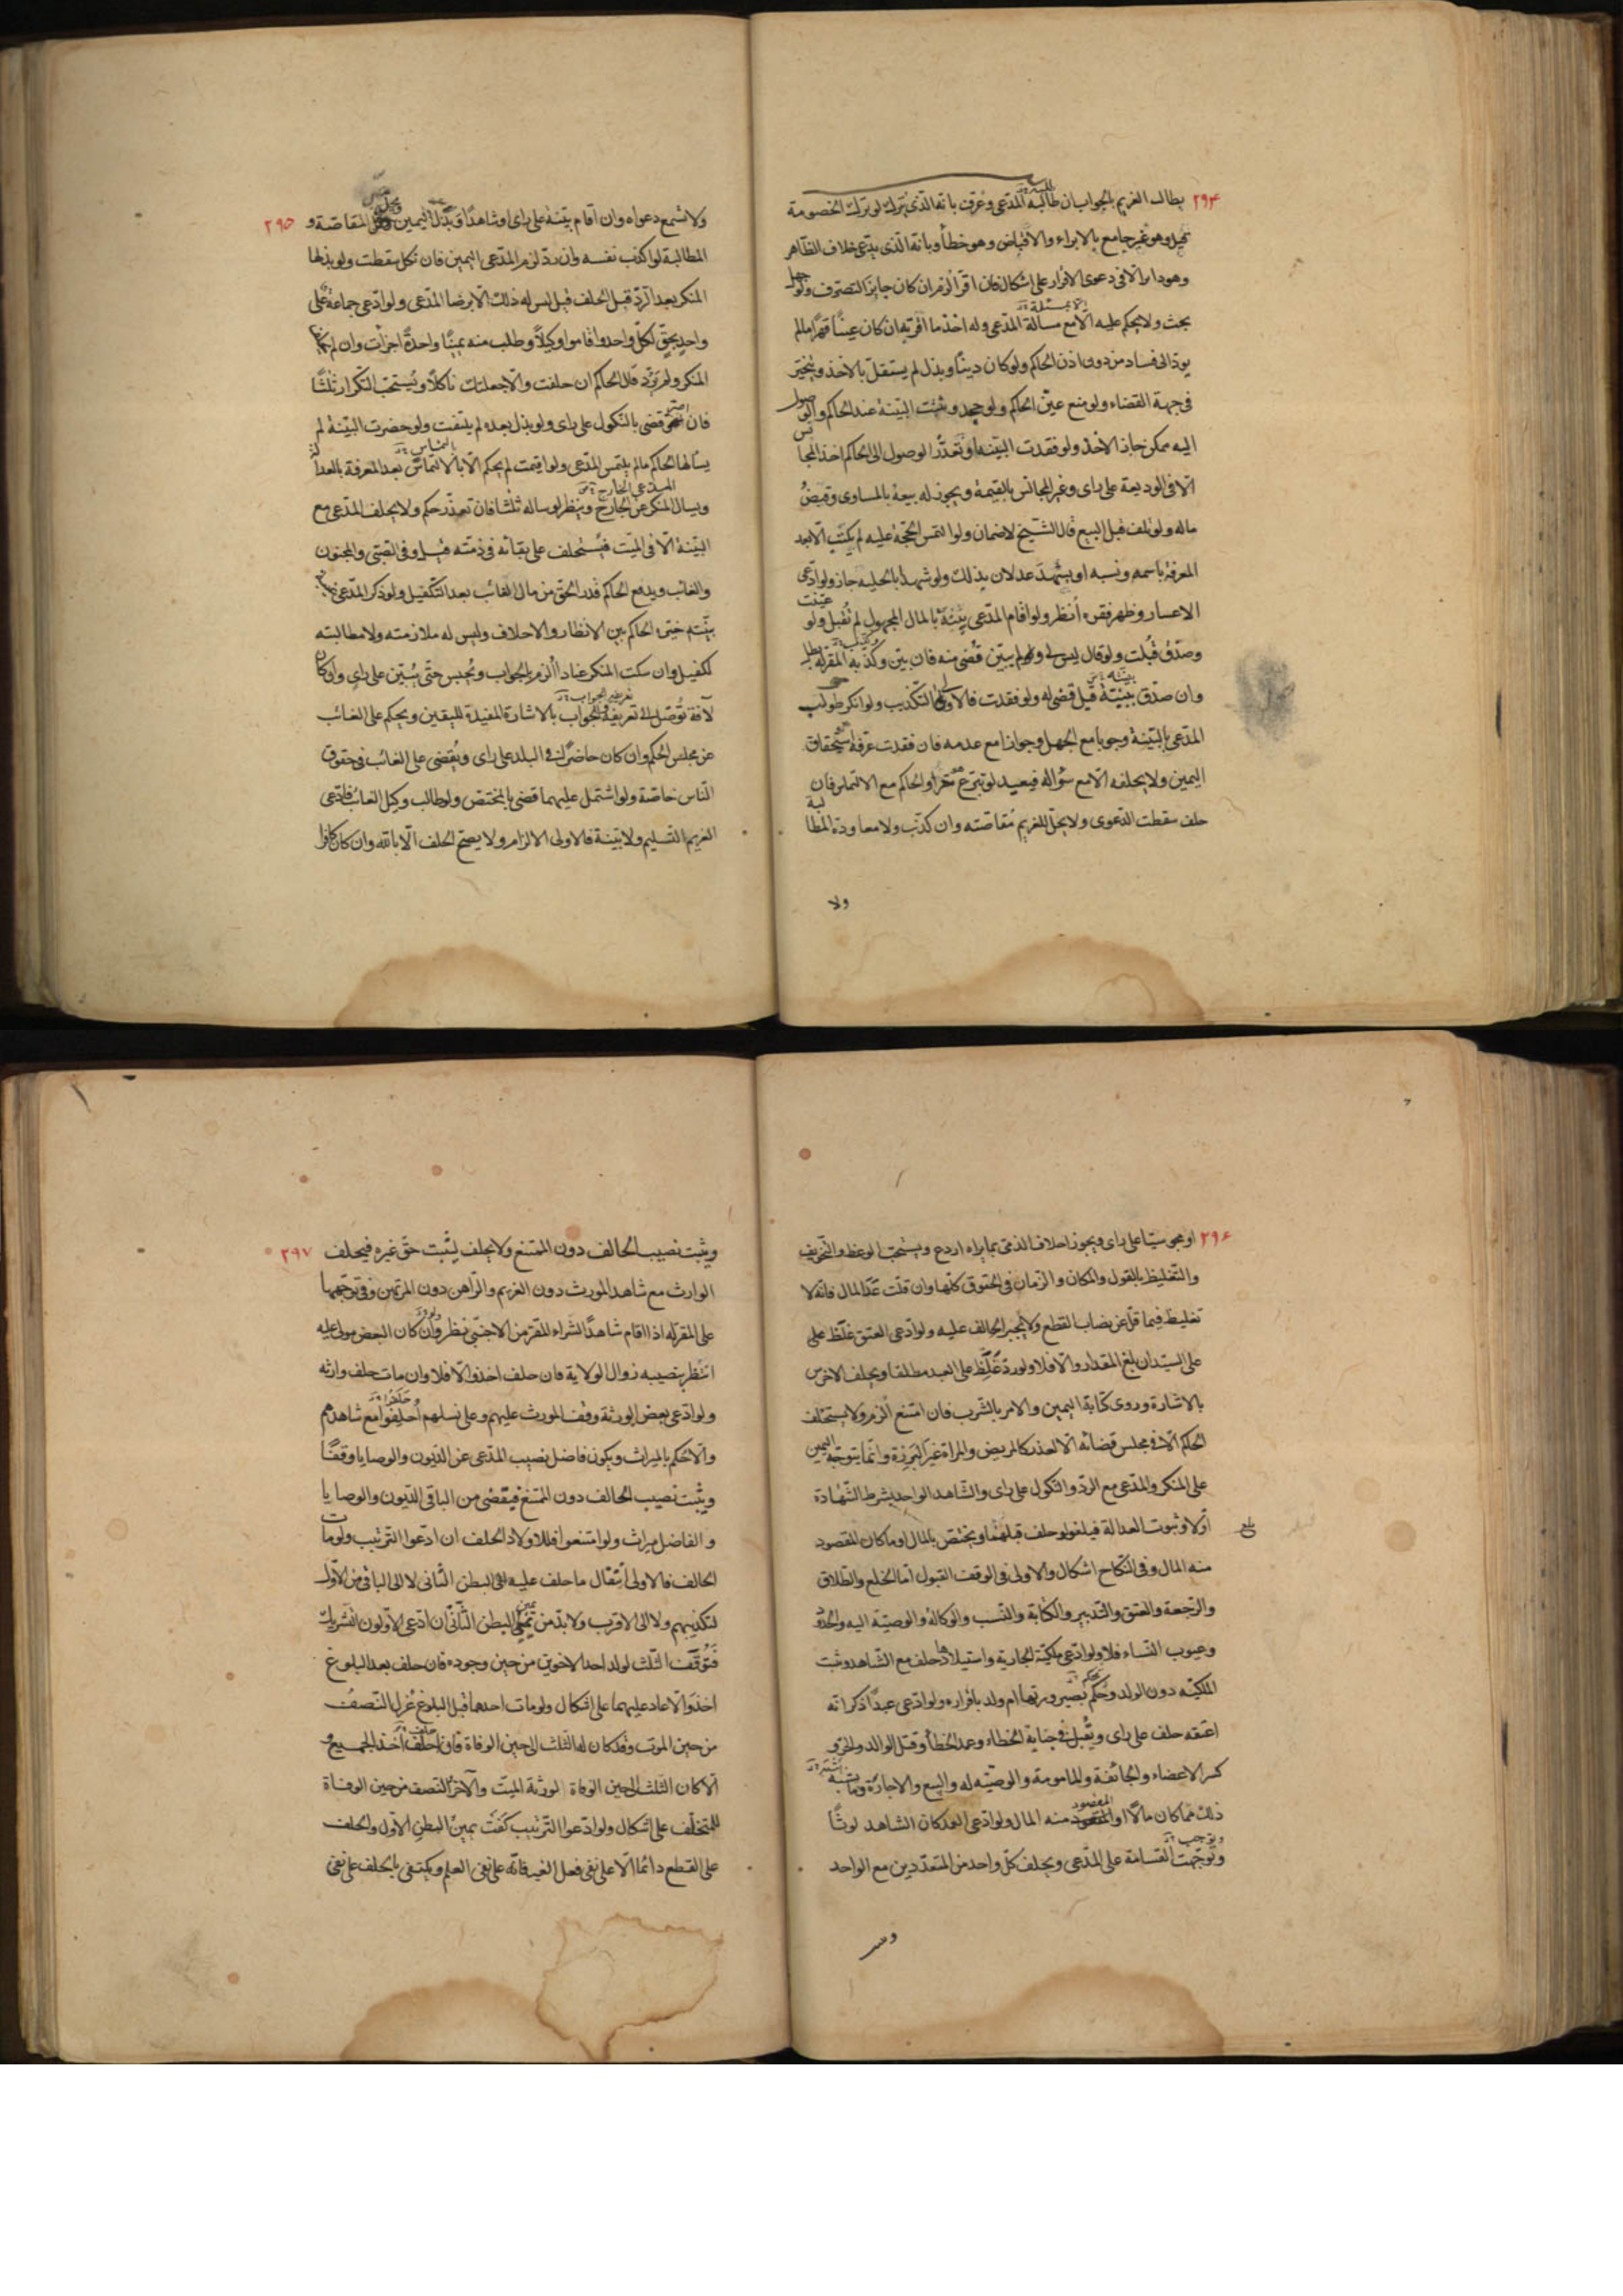 ٢٩٤
يطالب الغريم بالجواب ان طالبه المدّعى وعرف بانه الذى يترك لو ترك الخصومة
قيل وهو غير جامع بالابراء والاقباض وهو خطأ وبانه الذى يدّعى خلاف الظاهر
وهو دائر الا فى دعوى الاقرار على اشكال فان اقرّ الزم ان كان جايز التصرف ولو جهل
بحث ولا يحكم عليه الا مع مسألة المدّعى وله اخذ ما اقرّ به ان كان عينًا قهرًا ما لم
يودّ الى فساد من دون اذن الحاكم ولو كان دينًا وبذل لم يستقلّ بالاخذ ويتخيّر
فى جهة القضاء ولو منع عيّن الحاكم ولو جحد وثبتت البيّنة عند الحاكم والوصول
اليه ممكن جاز الاخذ ولو فقدت البيّنه او تعذّر الوصول الى الحاكم اخذ المجانس
الّا فى الوديعة على راى وغير المجانس بالقيمة ويجوز له بيعه بالمساوى وقبض
ماله ولو تلف قبل البيع قال الشيخ لا ضمان ولو التمس الحجّة عليه لم يكتب الا بعد
المعرفة باسمه ونسبه او يشهد عدلان بذلك ولو شهدا بالحليه جاز ولو ادّعى
الاعسار وظهر فقره اُنظر ولو اقام المدّعى بيّنة بالمال المجهول لم تقبل ولو عيّنت
وصدّق قُبلت ولو قال ليس لى ولم يبيّن قُضى منه فان بيّن وكذّبه المقرّ له بطل
وان صدّق ببيّنة قيل قضى له ولو فقدت فالاولى التكذيب ولو انكر طولب
المدّعى بالبيّنة وجوبا مع الجهل وجوازا مع عدمه فان فقدت عرّفه استحقاق
اليمين ولا يحلفه الّا مع سؤاله فيعيد لو تبرّع هو او الحاكم مع الالتماس فان
حلف سقطت الدعوى ولا يحلّ للغريم مقاصّته وان كذّب ولا معاودة المطالبة
ولا
٢٩٥
ولا تسمع دعواه وان اقام بيّنة على راى او شاهدًا وبذل اليمين ويحل المقاصّة و
المطالبة لو اكذب نفسه وان ردّ لزم المدّعى اليمين فان نكل سقطت ولو بذلها
المنكر بعد الردّ قبل الحلف قيل ليس له ذلك الّا برضا المدّعى ولو ادّعى جماعة على
واحدٍ بحقٍّ لكلّ واحد واقاموا وكيلاً وطلب منه يمينًا واحدةً اجزأت وان لم يحلف
المنكر ولم يردّ قال الحاكم ان حلفت والّا جعلتك ناكلاً ويُستحبّ التكرار ثلثًا
فان اصرّ قضى بالنكول على راى ولو بذل بعده لم يلتفت ولو حضرت البيّنة لم
يسألها الحاكم ما لم يلتمس المدّعى ولو اقيمت لم يحكم الّا بالتماس بعد المعرفة بالعدالة
ويسأل المنكر عن الجارح وينظر لو ساله ثلثا فان تعذّر حكم ولا يحلف المدّعى مع
البيّنة الّا فى الميّت فيُستحلف على بقائه فى ذمّته قيل وفى الصبىّ والمجنون
والغائب ويدفع الحاكم قدر الحق من مال الغائب بعد التكفيل ولو ذكر المدّعى غيبة
بيّنته خيّره الحاكم بين الانظار والاحلاف وليس له ملازمته ولا مطالبته
لكفيل وان سكت المنكر عنادا اُلزم بالجواب ويُحبس حتّى يُبيّن على راى وان كان
لآفة توصّل الى تعريفه الجواب بالاشارة المفيدة لليقين ويحكم على الغائب
عن مجلس الحكم وان كان حاضرًا فى البلد على راى ويُقضى على الغائب فى حقوق
الناس خاصّة ولو اشتمل عليهما قضى بالمختصّ ولو طالب وكيل الغائب فادّعى
الغريم التسليم ولا بيّنة فالاولى الالزام ولا يصحّ الحلف الّا بالله وان كان كافرا
٢٩۶
او مجوسيّا على راى ويجوز احلاف الذمّى بما يراه اردع ويستحبّ الوعظ والتخويف
والتغليظ بالقول والمكان والزمان فى الحقوق كلّها وان قلّت عدا المال فانه لا
تغليظ فيما قلّ عن نصاب القطع ولا يُجبر الحالف عليه ولو ادّعى العتق غلّظ على
على السيّد ان بلغ المقدار والّا فلا ولو ردّ غلّظ على العبد مطلقا ويحلف الاخرس
بالاشارة وروى كتابة اليمين والامر بالشرب فان امتنع اُلزم ولا يستحلف
الحكم الّا فى مجلس قضائه الّا لعذر كالمريض والمراة غير البرزة وانّما يتوجّه اليمين
على المنكر والمدّعى مع الردّ والنكول على راى والشاهد الواحد بشرط الشهادة
اوّلا وثبوت العدالة فيلغو لو حلف قبلهما ويختصّ بالمال او ما كان المقصود
بلغ
منه المال وفى النكاح اشكال والاولى فى الوقف القبول امّا الخلع والطلاق
والرجعة والعتق والتدبير والكتابة والنسب والوكالة والوصيّة اليه والحدّ
وعيوب النساء فلا ولو ادّعى ملكيّة الجارية واستيلادها حلف مع الشاهد وثبت
الملكيّه دون الولد وحُكم بصيرورتها ام ولد باقراره ولو ادّعى عبدًا ذكر انه
اعتقه حلف على راى ويُقبل فى جناية الخطاء وعمد الخطأ وقتل الوالد والحر و
كسر الاعضاء والجائفة والمامومة والوصيّه له والبيع والاجارة وما يشبه
ذلك ممّا كان مالًا او المقصود منه المال ولو ادّعى العمد كان الشاهد لوثًا
وتوجّهت القسامة على المدّعى ويحلف كلّ واحد من المتعدّدين مع الواحد
٢٩٧
ويثبت نصيب الحالف دون الممتنع ولا يحلف ليثبت حقّ غيره فيحلف
الوارث مع شاهد المورث دون الغريم والراهن دون المرتهن وفى توجّهها
على المقرّ له اذا اقام شاهدًا لشراء المقرّ من الاجنبىّ نظر ولو كان البعض مولى عليه
انتظر بنصيبه زوال الولاية فان حلف اخذ والّا فلا وان مات حلف وارثه
ولو ادّعى بعض الورثة وقف المورث عليهم وعلى نسلهم اُحلفوا مع شاهدهم
والّا حكم بالميراث ويكون فاضل نصيب المدّعى عن الديون والوصايا وقفًا
ويثبت نصيب الحالف دون الممتنع فيقضى من الباقى الديون والوصايا
والفاضل ميراث ولو امتنعوا فللاولاد الحلف ان ادّعوا الترتيب ولو مات
الحالف فالاولى انتقال ما حلف عليه الى البطن الثانى لا الى الباقى من الاوّل
لتكذيبهم ولا الى الاقرب ولا بدّ من يمين البطن الثانى ان ادّعى الاوّلون التشريك
فتوقّف الثلث لولد احد الاخوين من حين وجوده فان حلف بعد البلوغ
اخذ والّا عاد عليهما على اشكال ولو مات احدهما قبل البلوغ عُزل النصف
من حين الموت وقد كان له الثلث الى حين الوفاة فان حلف اخذ الجميع و
الّا كان الثلث الى حين الوفاة لورثة الميّت والآخر النصف من حين الوفاة
للمتخلّف على اشكال ولو ادّعوا الترتيب كفت يمين البطن الاوّل والحلف
على القطع دائما الّا على نفى فعل الغير فانه على نفى العلم ويكتفى بالحلف على نفى